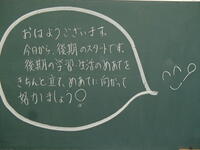 おはようございます。
今日から、後期のスタートです。
後期の学習・生活のめあてを
きちんと立て、めあてに向かって
努力しましょう